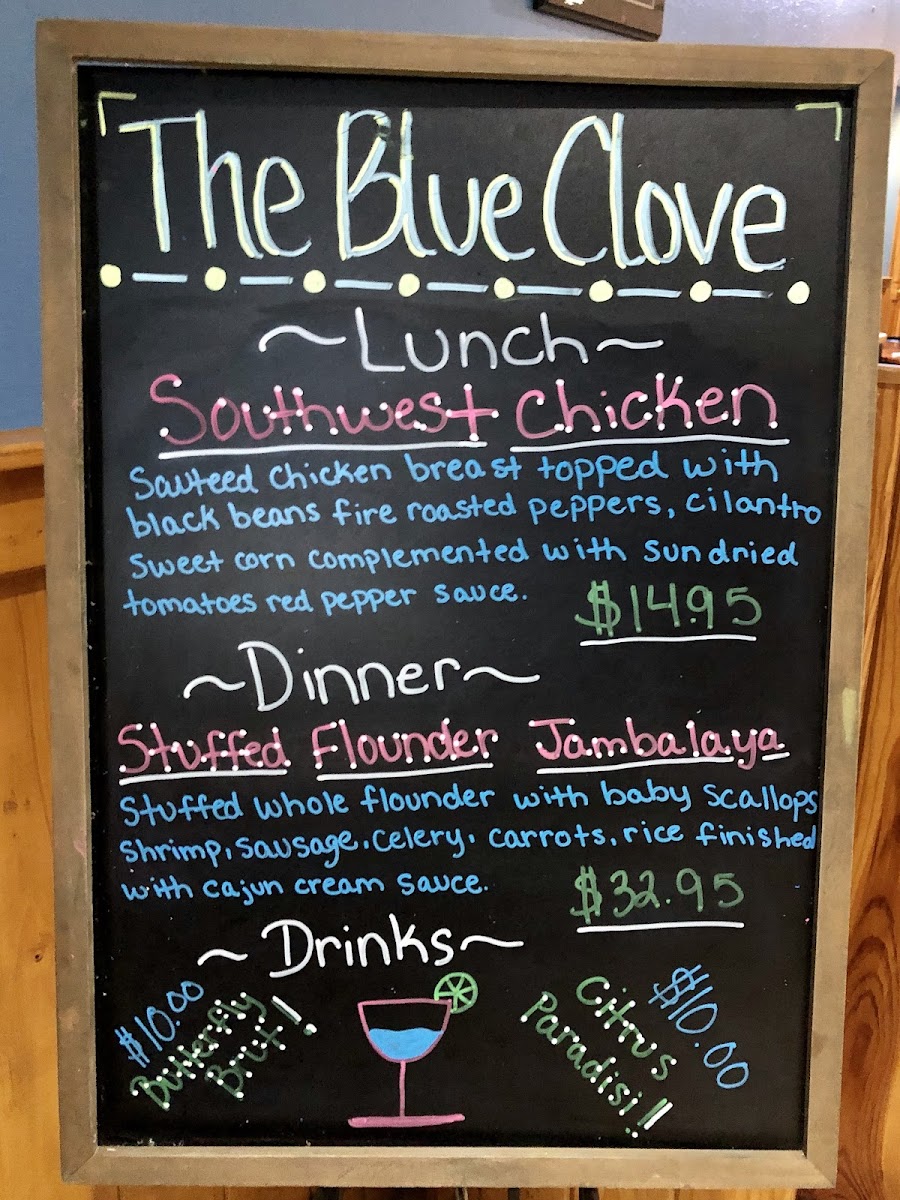 The Blue Clove
~Lunch~
Southwest Chicken
Sauteed Chicken breast topped with
black beans fire roasted peppers, cilantro
Sweet corn complemented with Sun dried
tomatoes red pepper sauce.
$14.95
~Dinner~
Stuffed Flounder Jambalaya
Stuffed whole flounder with baby scallops
shrimp, sausage, celery, carrots, rice finished
with cajun cream sauce.
$32.95
~Drinks~
$10.00
Butterfly
Brut!!
Citrus
Paradisi!!
$10.00